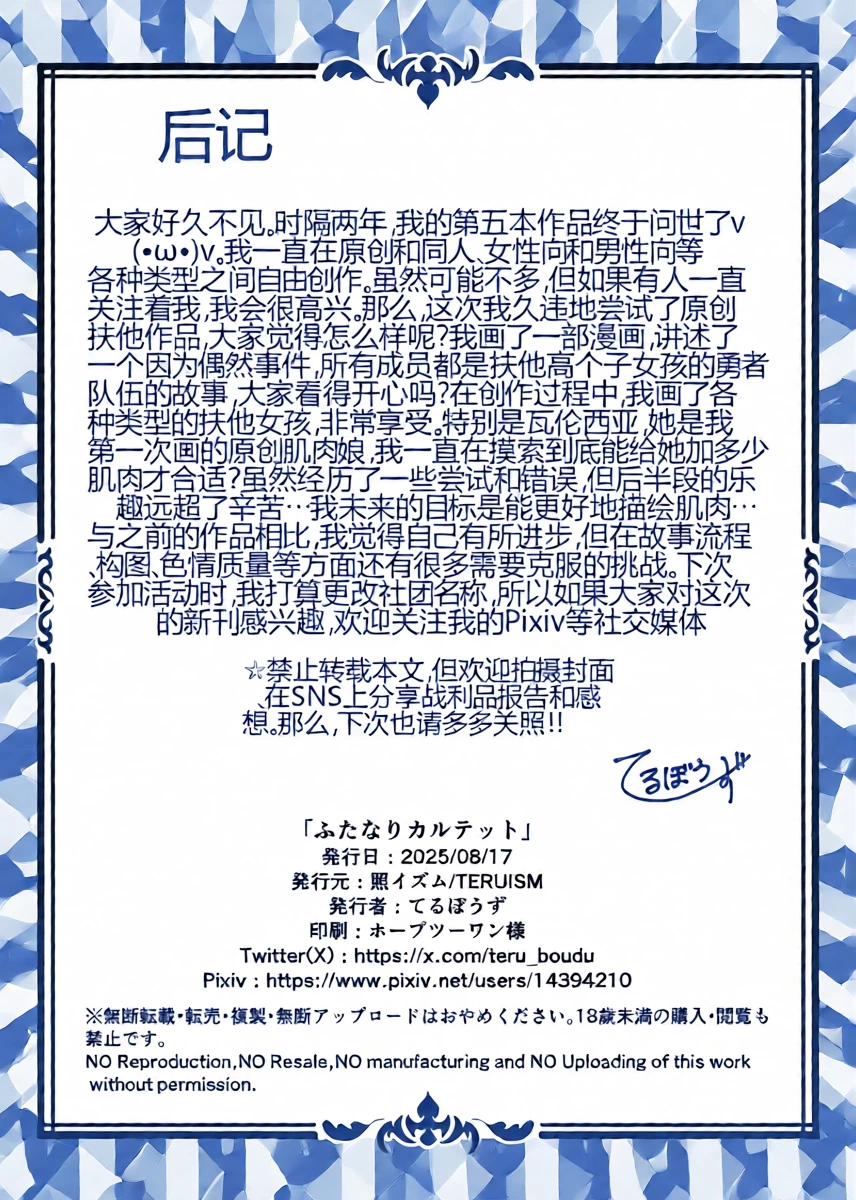 后记
大家好久不见。时隔两年,我的第五本作品终于问世了v
(•ω•)v。我一直在原创和同人、女性向和男性向等
各种类型之间自由创作。虽然可能不多,但如果有人一直
关注着我,我会很高兴。那么,这次我久违地尝试了原创
扶他作品,大家觉得怎么样呢?我画了一部漫画,讲述了
一个因为偶然事件,所有成员都是扶他高个子女孩的勇者
队伍的故事,大家看得开心吗?在创作过程中,我画了各
种类型的扶他女孩,非常享受。特别是瓦伦西亚,她是我
第一次画的原创肌肉娘,我一直在摸索到底能给她加多少
肌肉才合适?虽然经历了一些尝试和错误,但后半段的乐
趣远超了辛苦…我未来的目标是能更好地描绘肌肉…
与之前的作品相比,我觉得自己有所进步,但在故事流程
、构图、色情质量等方面还有很多需要克服的挑战。下次
参加活动时,我打算更改社团名称,所以如果大家对这次
的新刊感兴趣,欢迎关注我的Pixiv等社交媒体
☆禁止转载本文,但欢迎拍摄封面
、在SNS上分享战利品报告和感
想。那么,下次也请多多关照!!
てるぼうず
「ふたなりカルテット」
発行日：2025/08/17
発行元：照イズム/TERUISM
発行者：てるぼうず
印刷：ホープツーワン様
Twitter(X)：https://x.com/teru_boudu
Pixiv：https://www.pixiv.net/users/14394210
※無断転載・転売・複製・無断アップロードはおやめください。18歳未満の購入・閲覧も
禁止です。
NO Reproduction,NO Resale,NO manufacturing and NO Uploading of this work
without permission.